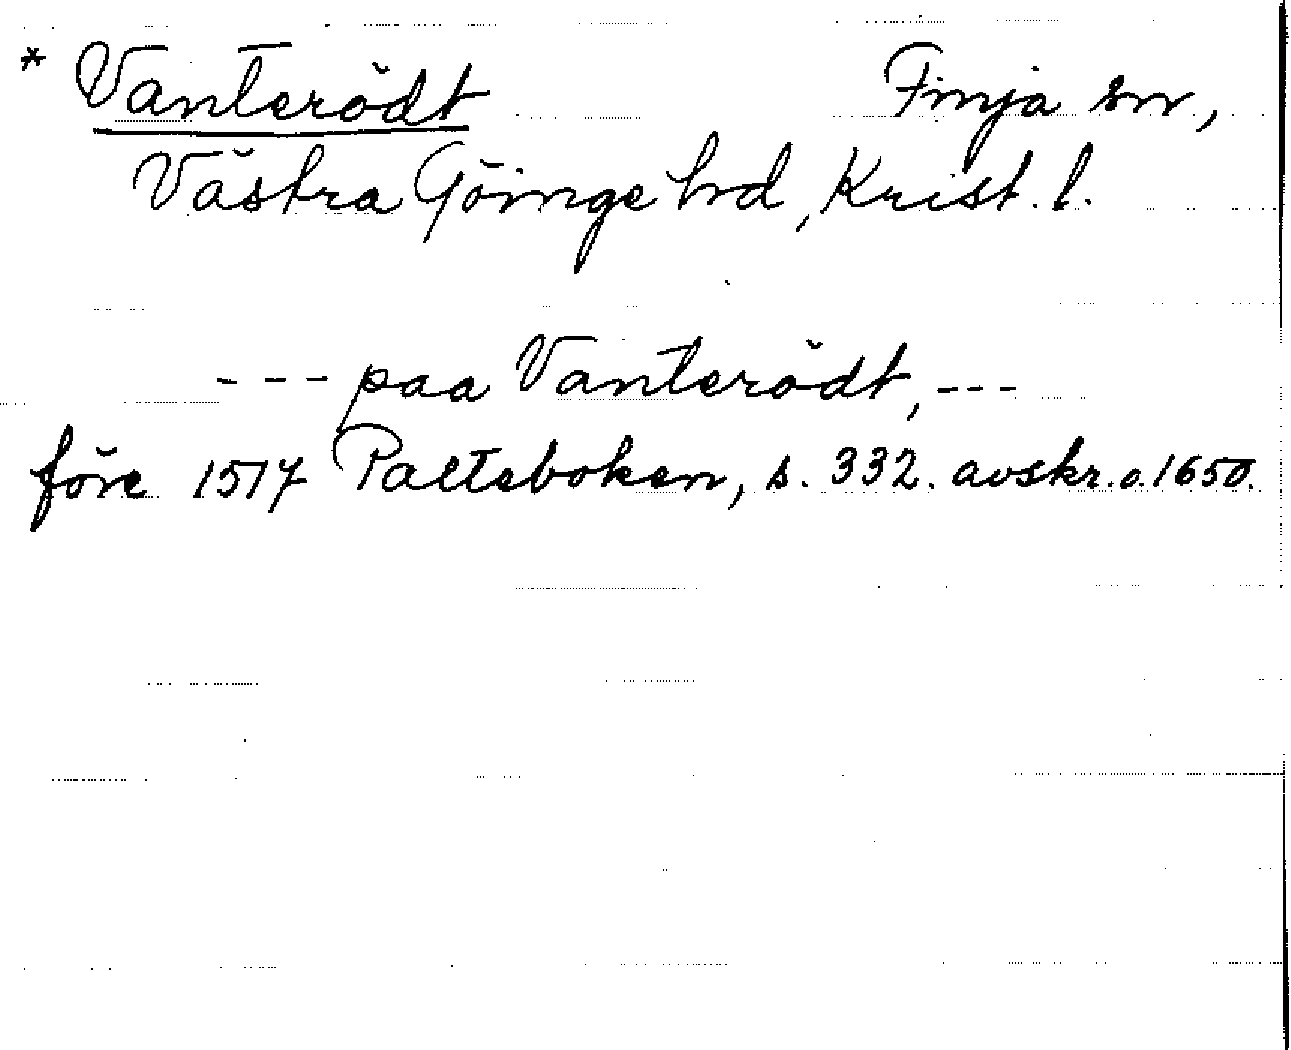 * Vanterödt Finja sn,
Västra Göinge hrd, Krist. l.
--- paa Vanterödt, ---
före 1517 Palteboken, s. 332. avskr. o. 1650.